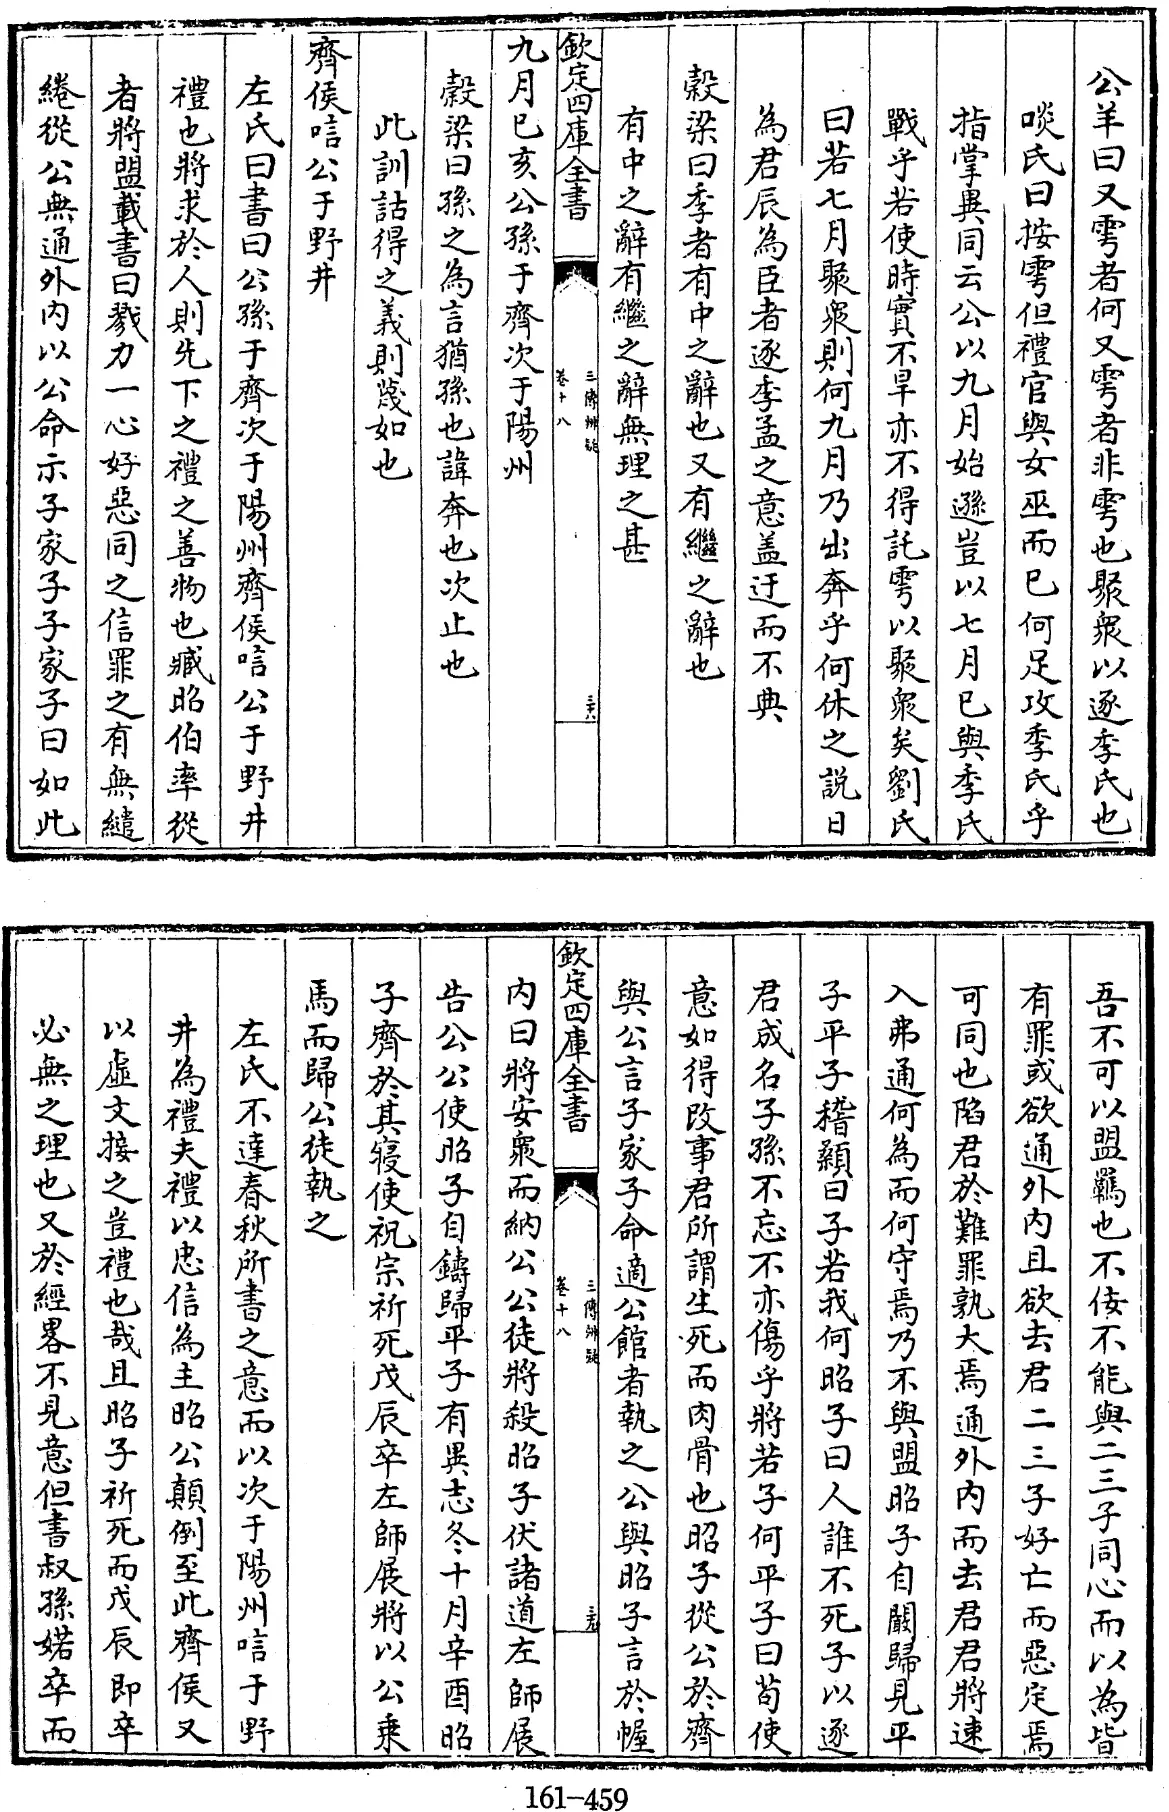 公羊曰又雩者何又雩者非雩也聚衆以逐季氏也
啖氏曰按雩但禮官與女巫而已何足攻季氏乎
指掌異同云公以九月始遜豈以七月已與季氏
戰乎若使時實不旱亦不得託雩以聚衆矣劉氏
曰若七月聚衆則何九月乃出奔乎何休之説日
為君辰為臣者逐季孟之意盖迂而不典
穀梁曰季者有中之辭也又有繼之辭也
有中之辭有繼之辭無理之甚
欽定四庫全書
三傳辨疑
卷十八
三六
九月已亥公孫于齊次于陽州
穀梁曰孫之為言猶孫也諱奔也次止也
此訓詁得之義則蔑如也
齊侯唁公于野井
左氏曰書曰公孫于齊次于陽州齊侯唁公于野井
禮也將求於人則先下之禮之善物也臧昭伯率從
者將盟載書曰戮力一心好惡同之信罪之有無繾
綣從公無通外内以公命示子家子子家子曰如此
吾不可以盟羈也不佞不能與二三子同心而以為皆
有罪或欲通外内且欲去君二三子好亡而惡定焉
可同也陷君於難罪孰大焉通外内而去君君將速
入弗通何為而何守焉乃不與盟昭子自闞歸見平
子平子稽顙曰子若我何昭子曰人誰不死子以逐
君成名子孫不忘不亦傷乎將若子何平子曰茍使
意如得改事君所謂生死而肉骨也昭子從公於齊
與公言子家子命適公館者執之公與昭子言於幄
欽定四庫全書
三傳辨疑
卷十八
三九
内曰將安衆而納公公徒將殺昭子伏諸道左師展
告公公使昭子自鑄歸平子有異志冬十月辛酉昭
子齊於其寢使祝宗祈死戊辰卒左師展將以公乗
馬而歸公徒執之
左氏不達春秋所書之意而以次于陽州唁于野
井為禮夫禮以忠信為主昭公顛倒至此齊侯又
以虛文接之豈禮也哉且昭子祈死而戊辰即卒
必無之理也又於經畧不見意但書叔孫婼卒而
161-459